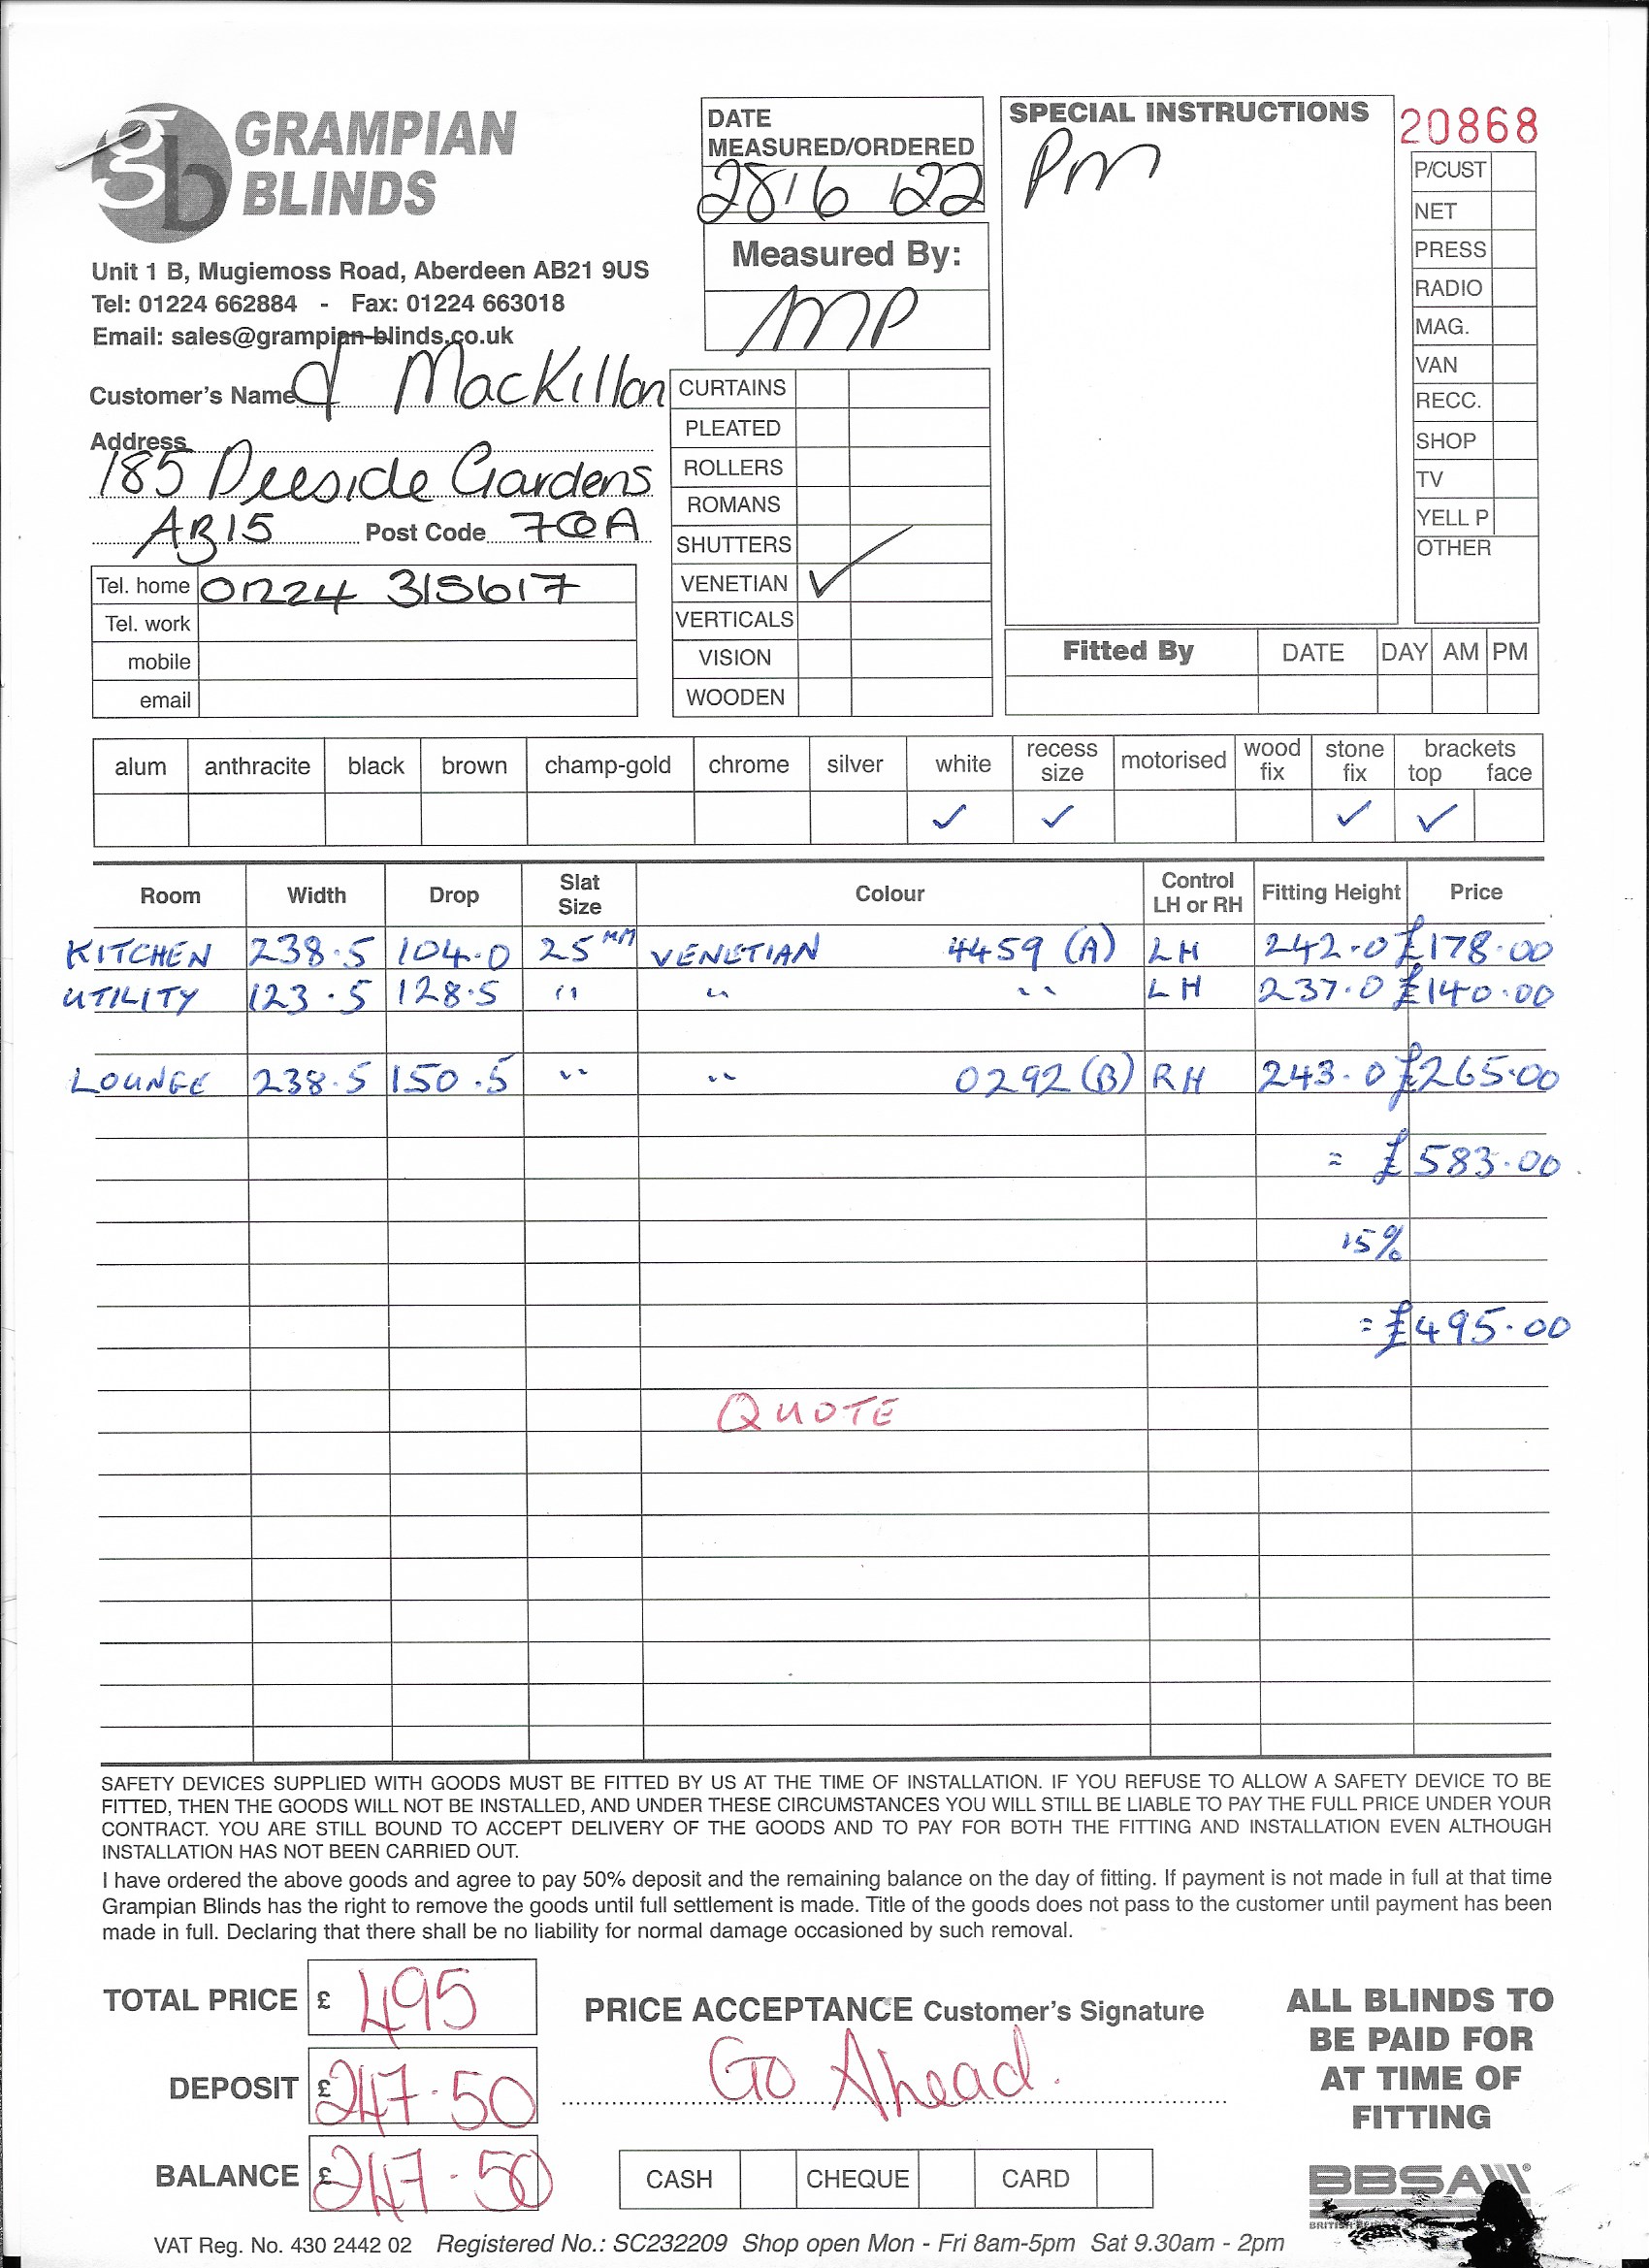 gb GRAMPIAN
BLINDS
Unit 1 B, Mugiemoss Road, Aberdeen AB21 9US
Tel: 01224 662884 - Fax: 01224 663018
Email: sales@grampian-blinds.co.uk
Customer's Name MacKillon
Address
185 Deeside Gardens
AB15 Post Code 7QA
Tel. home 01224 315617
Tel. work
mobile
email
DATE
MEASURED/ORDERED
28/6/22
Measured By:
MP
CURTAINS
PLEATED
ROLLERS
ROMANS
SHUTTERS
VENETIAN ✓
VERTICALS
VISION
WOODEN
SPECIAL INSTRUCTIONS
Pm
20868
P/CUST
NET
PRESS
RADIO
MAG.
VAN
RECC.
SHOP
TV
YELL P
OTHER
Fitted By DATE DAY AM PM
alum anthracite black brown champ-gold chrome silver white recess size motorised wood fix stone fix brackets top face
✓ ✓ ✓ ✓
Room Width Drop Slat Size Colour Control LH or RH Fitting Height Price
KITCHEN 238.5 104.0 25MM VENETIAN 4459 (A) LH 242.0 £178.00
UTILITY 123.5 128.5 " " " LH 237.0 £140.00
LOUNGE 238.5 150.5 " " 0292 (B) RH 243.0 £265.00
= £583.00
15%
= £495.00
QUOTE
SAFETY DEVICES SUPPLIED WITH GOODS MUST BE FITTED BY US AT THE TIME OF INSTALLATION. IF YOU REFUSE TO ALLOW A SAFETY DEVICE TO BE
FITTED, THEN THE GOODS WILL NOT BE INSTALLED, AND UNDER THESE CIRCUMSTANCES YOU WILL STILL BE LIABLE TO PAY THE FULL PRICE UNDER YOUR
CONTRACT. YOU ARE STILL BOUND TO ACCEPT DELIVERY OF THE GOODS AND TO PAY FOR BOTH THE FITTING AND INSTALLATION EVEN ALTHOUGH
INSTALLATION HAS NOT BEEN CARRIED OUT.
I have ordered the above goods and agree to pay 50% deposit and the remaining balance on the day of fitting. If payment is not made in full at that time
Grampian Blinds has the right to remove the goods until full settlement is made. Title of the goods does not pass to the customer until payment has been
made in full. Declaring that there shall be no liability for normal damage occasioned by such removal.
TOTAL PRICE £ 495
DEPOSIT £ 247.50
BALANCE £ 247.50
PRICE ACCEPTANCE Customer's Signature
Go Ahead.
CASH CHEQUE CARD
ALL BLINDS TO
BE PAID FOR
AT TIME OF
FITTING
BBSA
VAT Reg. No. 430 2442 02 Registered No.: SC232209 Shop open Mon - Fri 8am-5pm Sat 9.30am - 2pm